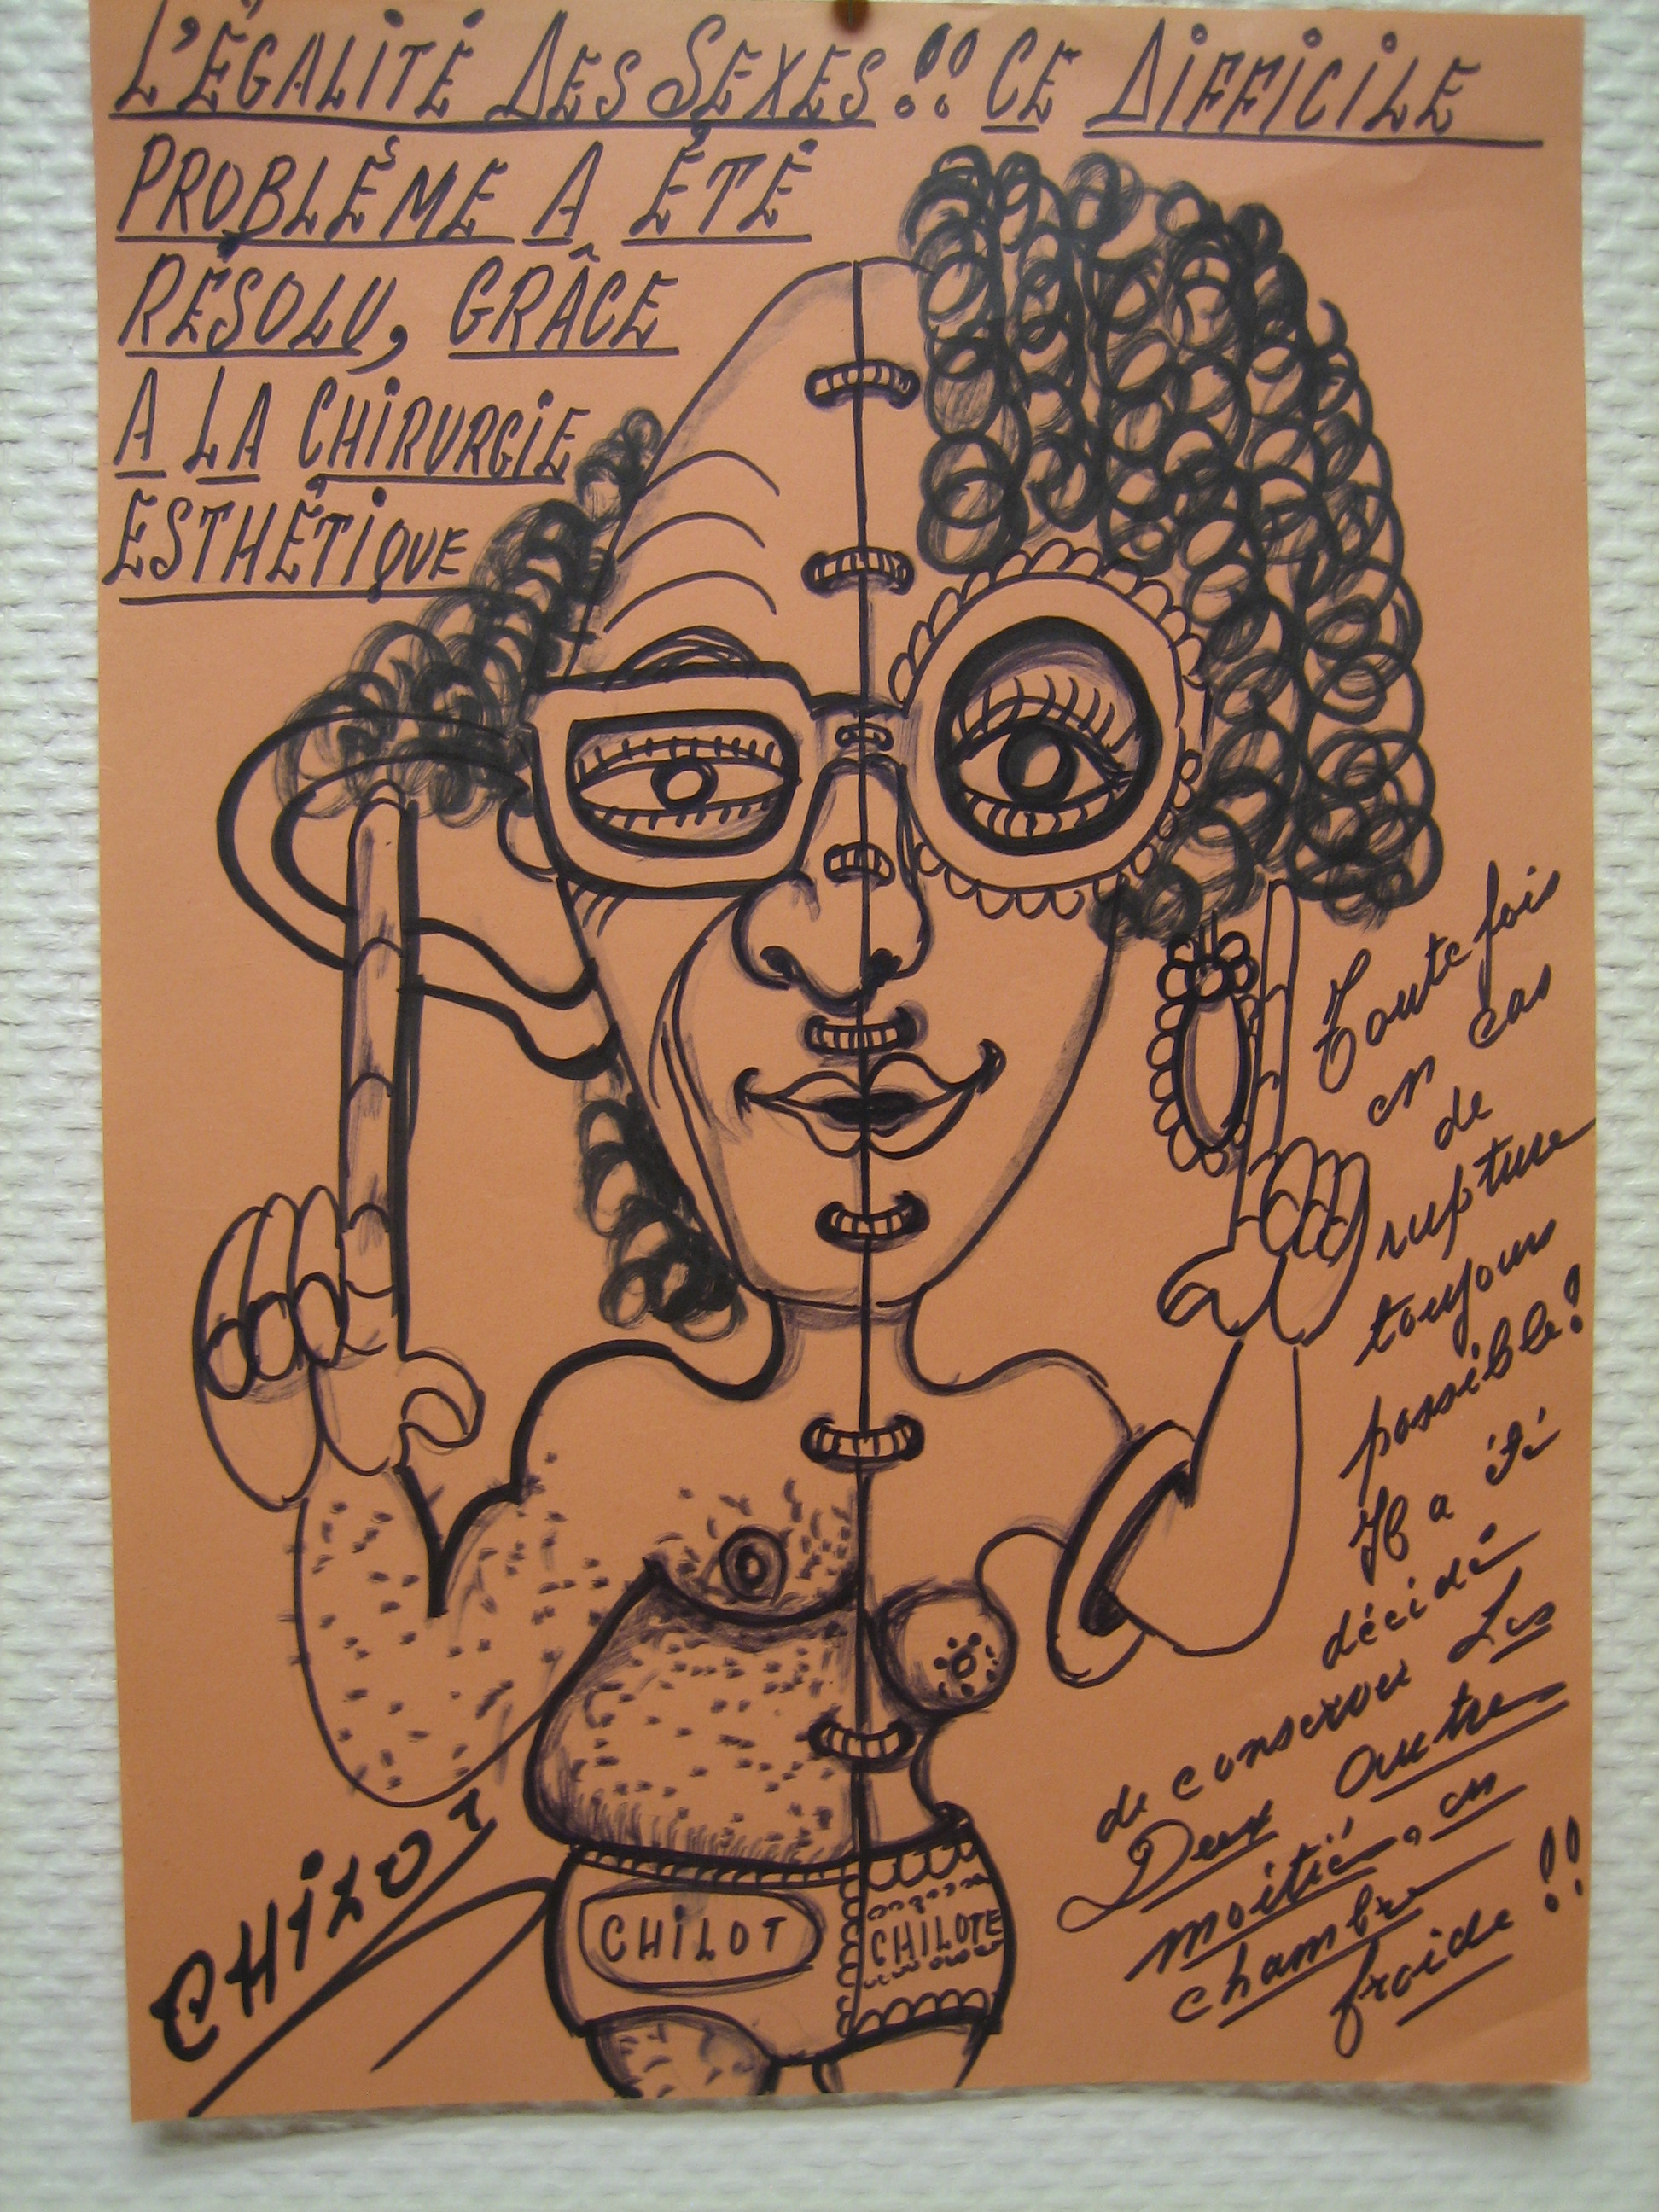 L'ÉGALITÉ DES SEXES!! CE DIFFICILE
PROBLÉME A ÉTÉ
RÉSOLU, GRÂCE
A LA CHIRURGIE
ESTHÉTIQUE
Toute fois
en cas
de
rupture
toujours
possible!
Il a été
décidé
de conserver Les
Deux autre
moitiés, en
chambre
froide!!
CHILOT
CHILOTE
CHILOT